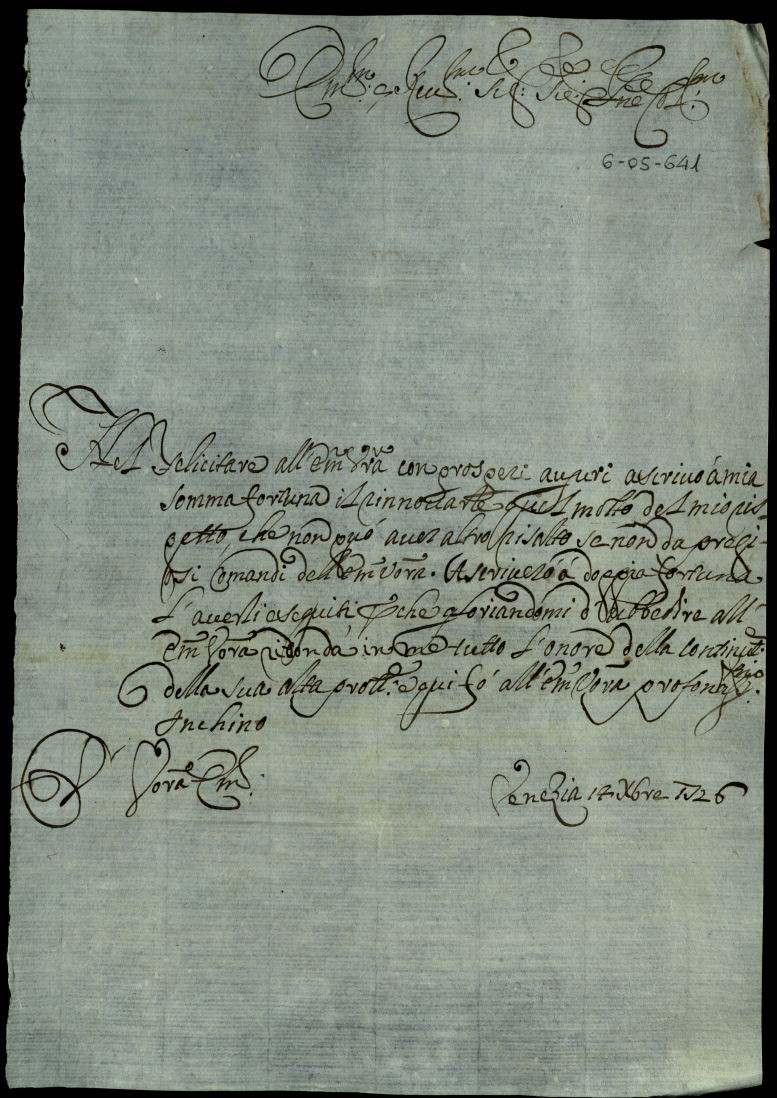 Em.mo e Reu.mo Sig: Sig: Pne Col.mo
6-05-641
Nel felicitare all'Em.a V.ra con prosperi auguri ascrivo á mia
somma fortuna il rinnovarle quel molto del mio ris-
petto, che non può aver altro risalto se non da prezi-
osi Comandi dell'Em.a Vora. Ascriveró á doppia fortuna
l'averli eseguiti p che gloriandomi d'ubbedire all'
Em.a Vora ridonda in me tutto l'onore della continuat.
della sua alta prott.e e qui fó all'Em.a Vora profond.mo
Inchino
D Vora Em.
Venezia 14 Xbre 1726